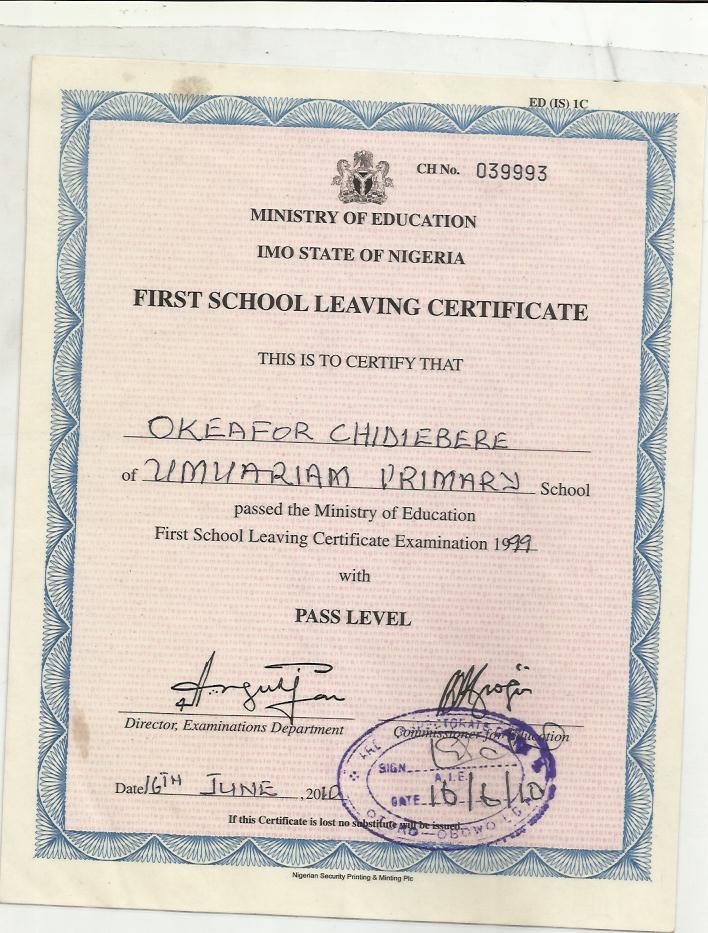 ED (IS) 1C
CH No. 039993
MINISTRY OF EDUCATION
IMO STATE OF NIGERIA
FIRST SCHOOL LEAVING CERTIFICATE
THIS IS TO CERTIFY THAT
OKEAFOR CHIDIEBERE
of UMUARIAM PRIMARY School
passed the Ministry of Education
First School Leaving Certificate Examination 1999
with
PASS LEVEL
Director, Examinations Department
Commissioner for Education
SIGN
A.I.E.
Date 16TH JUNE, 2010
DATE 16/6/10
OBOWO
If this Certificate is lost no substitute will be issued.
Nigerian Security Printing & Minting Plc